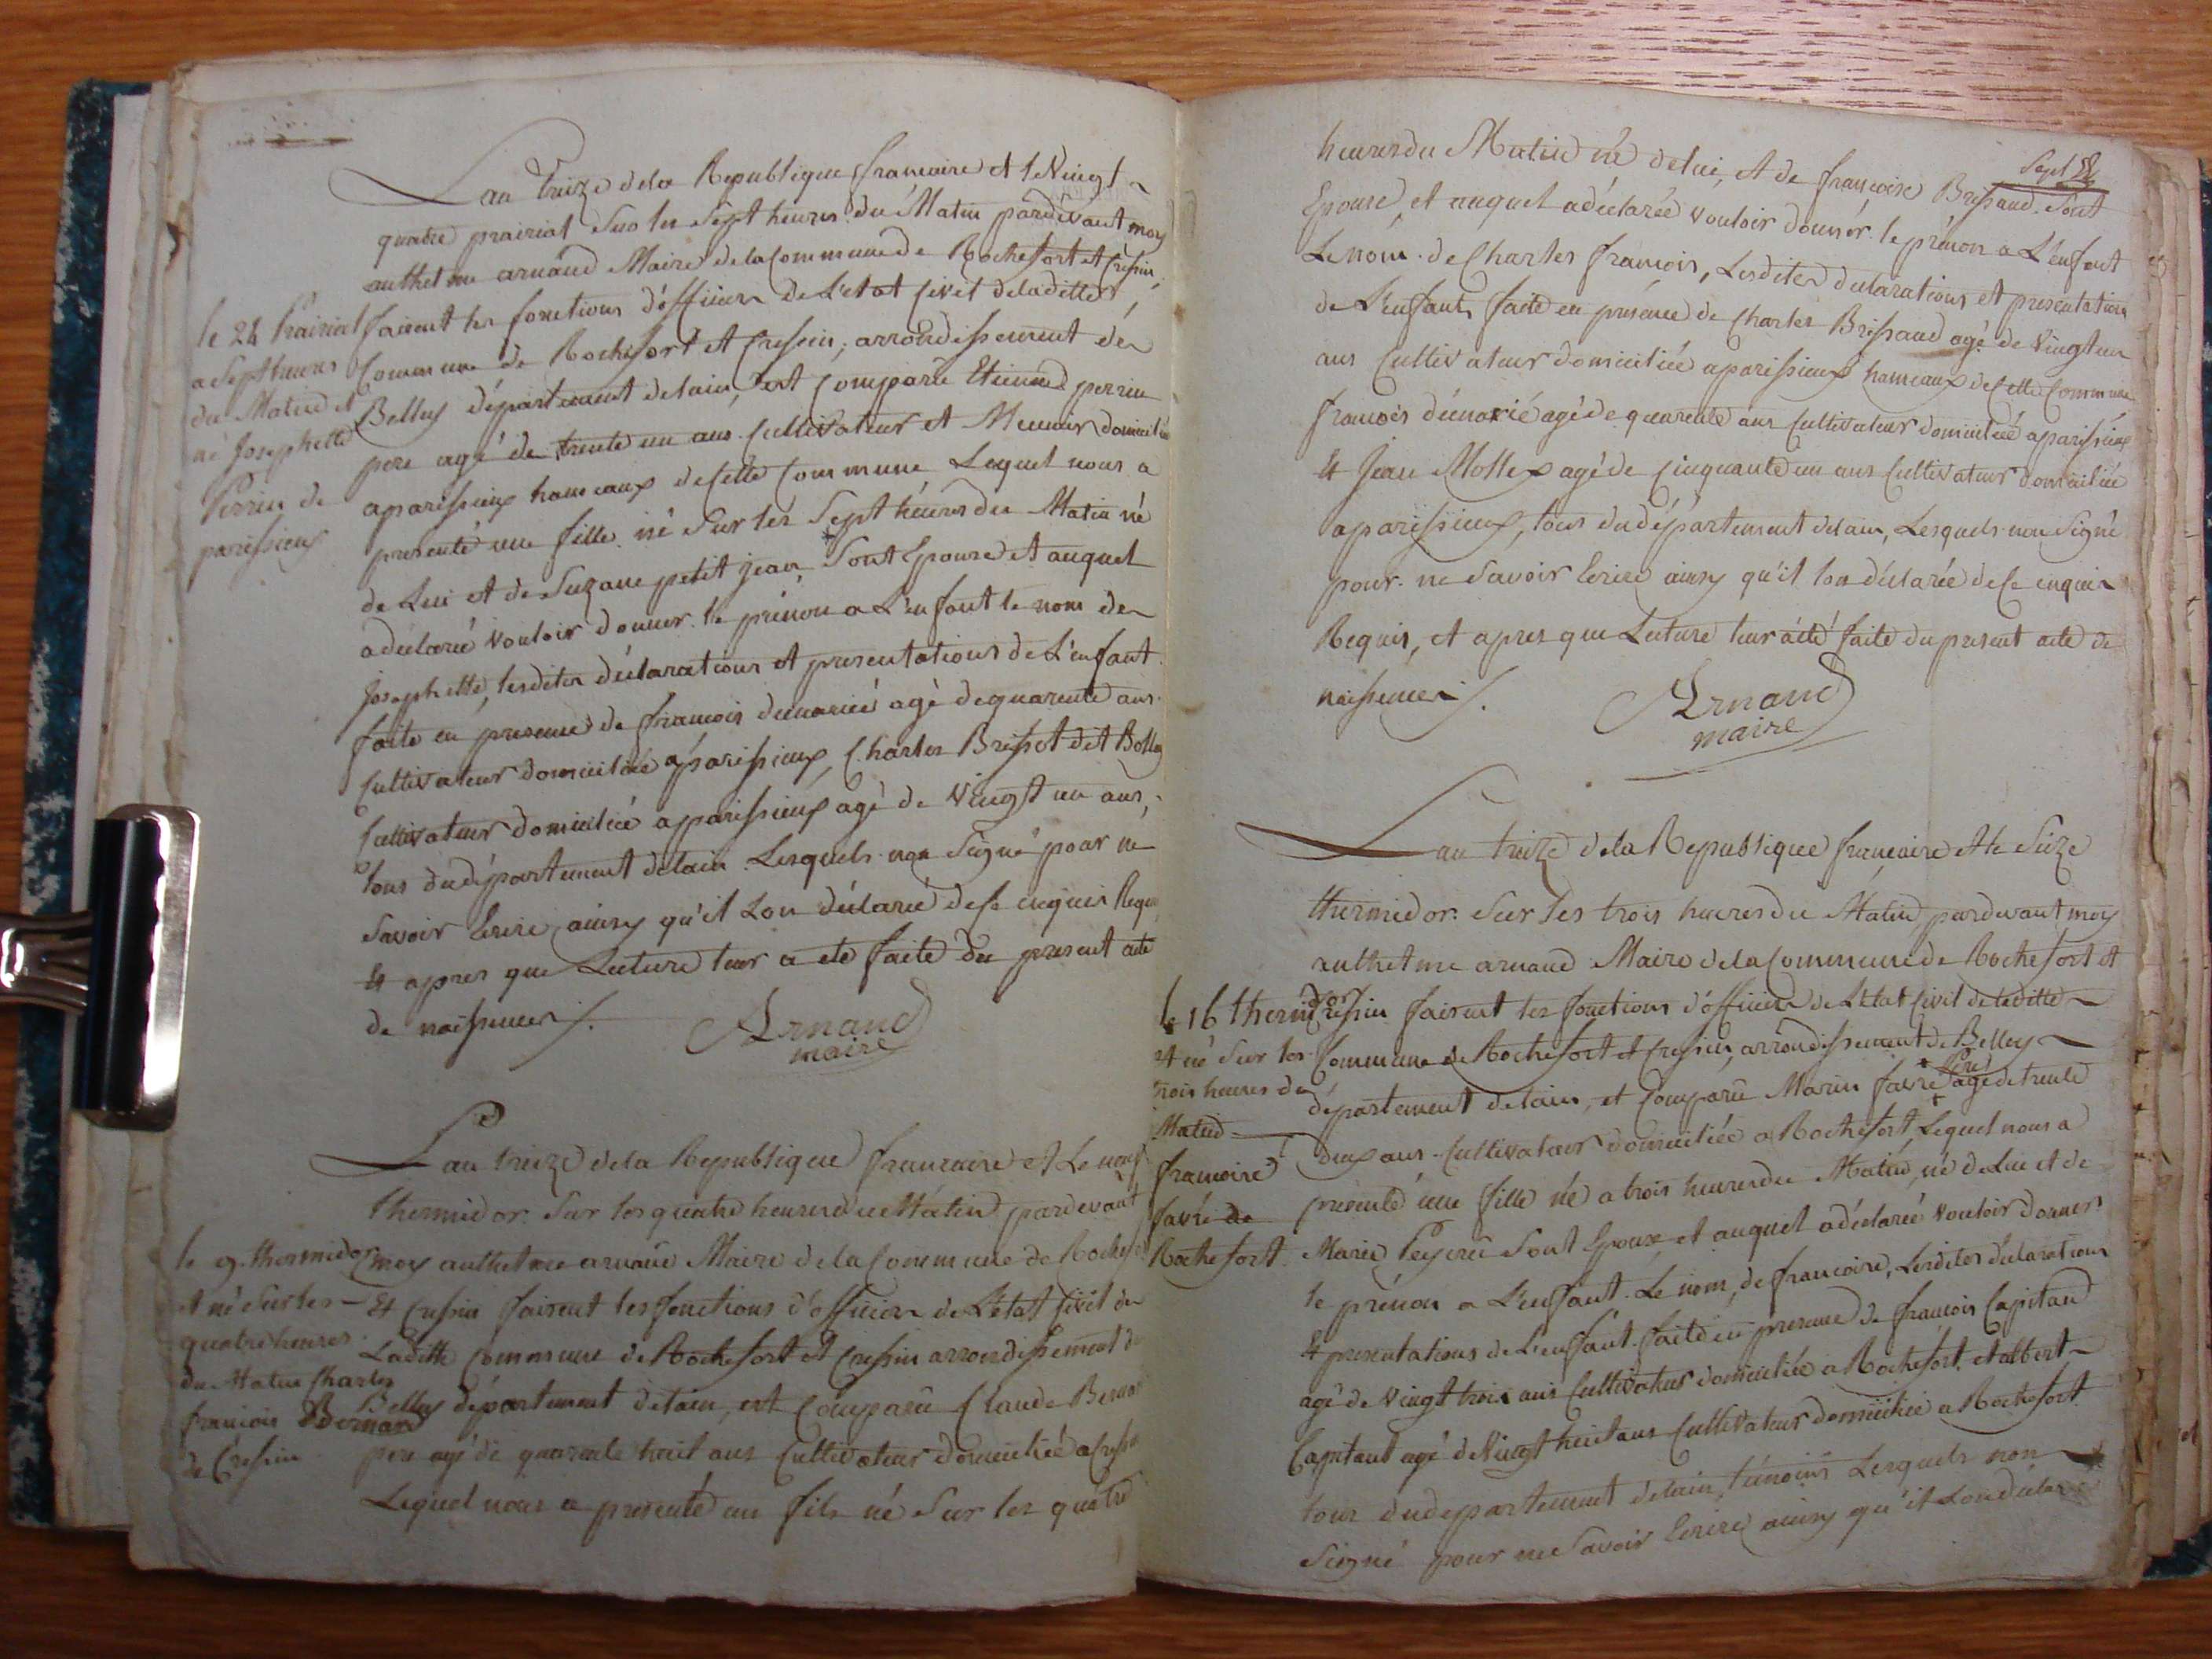 Lan treize dela Republique francaise et le Vingt
quatre prairial Sur les Sept heures du Matin pardevant moy
anthelme arnaud Maire dela Commune de Rochefort et Cressin,
faisent les fonctions d'officier de L'etat Civil deladitte
Commune de Rochefort et Cressin, arrondissement de
Belley département delain, est comparu Etienne perrin
pere agé de trente un ans Cultivateur et Meunier domicilié
aparissieux hameaux de cette Commune Lequel nous a
presenté une fille né Sur les Sept heures du Matin né
de Lui et de Suzane petit jean, Sont Epouse et auquel
a déclarée vouloir donner le prénon a L'enfant le nom de
Josephette, lesdites déclarations et presentations de L'enfant
faite en presence de francois demariée agè de quarente ans
Cultivateur domiciliée aparissieux, Charles Brisset dit Bolley
Cultivateur domiciliée aparissieux agè de Vingt un ans,
tous dudépartement delain Lesquels non Signé pour ne
Savoir Ecrire, ainsy qu'il Lon déclarée dece enquis Requis
Et apres que Lecture leur a eté faite du present acte
de naissence ./.
Arnaud
maire
le 24 Prairial
a Sept heures
du Matin et
né Josephette
Perrin de
parissieux
Lan treize dela Republique francaise et Le neuf
thermidor Sur les quatre heures du Matin pardevant
moy anthelme arnaud Maire dela Commune de Rochefort
Et Cressin faisent les fonctions d'officier de L'état Civil de
Laditte Commune de Rochefort et Cressin arrondissement de
Belley département delain, est Comparu Claude Bernard
pere agé de quarente huit ans Cultivateur domiciliée a Cressin
Lequel nous a presenté un fils né Sur les quatre
le 9. thermidor
et né Sur les
quatre heures
du Matin Charles
francois Bernard
de Cressin
Sept
heures du Matin né delui, et de francoise Brissaud Sont
Epouse, et auquel a déclarée vouloir donnér le prénon a L'enfant
Le nom de Charles francois, Lesdites declarations et presentations
de L'enfant, faite en présence de Charles Brissaud agé de Vingt un
ans Cultivateur domiciliée aparissieux hameaux de Cette Commune
francois démarié agè de quarente ans Cultivateur domiciliée aparissieux
Et Jean Mollex agè de Cinquante un ans Cultivateur domiciliée
aparissieux, tous dudépartement delain, Lesquels non Signé
pour ne Savoir Ecrire ainsy qu'il lon déclarée dece enquis
Requis, et apres que Lecture leur áété faite du present acte de
naissence ./.
Arnaud
maire
Lan treize dela Republique francaise et le Seize
thermidor Sur les trois heures du Matin, pardevant moy
anthelme arnaud Maire dela Commune de Rochefort et
Cressin faisent les fonctions d'officier de L'etat Civil de laditte
Commune de Rochefort et Cressin, arrondissement de Belley
département delain, et Comparu Marin favre pere agé de trente
deux ans Cultivateur domiciliée a Rochefort, Lequel nous a
presenté une fille né a trois heures du Matin, né de Lui et de
Marie Sont Epouse et auquel a déclarée vouloir donner
le prénon a L'enfant Le nom, de francoise, Lesdites déclarations
Et presentations de L'enfant faite en presence de francois Capitand
agé de Vingt trois ans Cultivateur domiciliée a Rochefort, et albert
Capitant agé de Vingt huit ans Cultivateur domiciliée a Rochefort
tous dudepartement delain, témoins Lesquels non
Signé pour ne Savoir Ecrire ainsy qu'il Lon déclaré
le 16 thermidor
et né Sur les
trois heures du
Matin
francoise
favre de
Rochefort